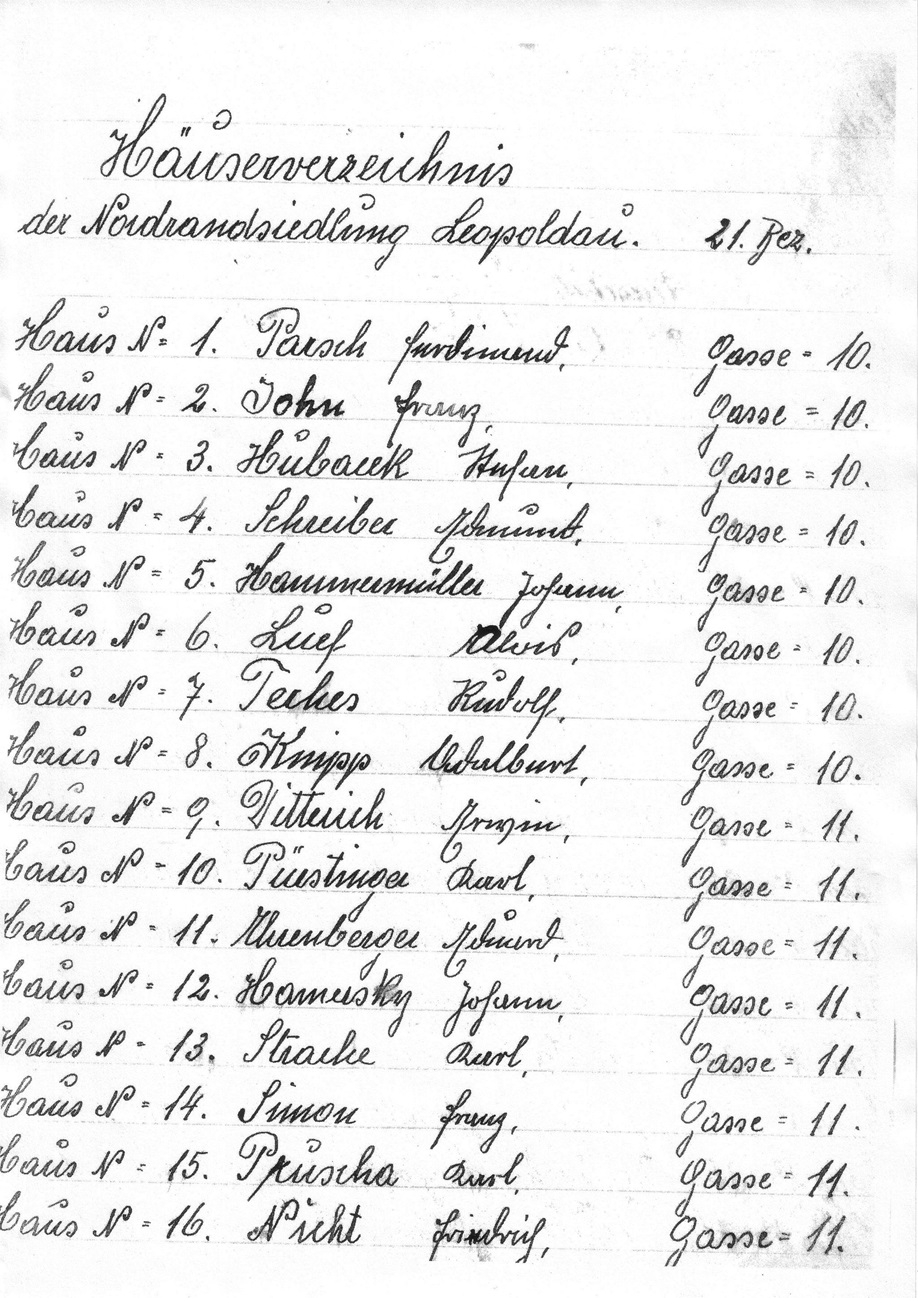 Häuserverzeichnis
der Nordrandsiedlung Leopoldau. 21. Bez.
Haus N= 1. Parsch Ferdinand, Gasse = 10.
Haus N = 2. John Franz, Gasse = 10.
Haus N = 3. Hubacek Stefan, Gasse = 10.
Haus N = 4. Schreiber Edmund, Gasse = 10.
Haus N = 5. Hammermüller Johann, Gasse = 10.
Haus N = 6. Luef Alois, Gasse = 10.
Haus N = 7. Teches Rudolf, Gasse = 10.
Haus N = 8. Knipp Adalbert, Gasse = 10.
Haus N = 9. Ditterich Erwin, Gasse = 11.
Haus N = 10. Püestinger Karl, Gasse = 11.
Haus N = 11. Ehrenberger Eduard, Gasse = 11.
Haus N = 12. Hamersky Johann, Gasse = 11.
Haus N = 13. Strache Karl, Gasse = 11.
Haus N = 14. Simon Franz, Gasse = 11.
Haus N = 15. Pruscha Karl, Gasse = 11.
Haus N = 16. Nicht Friedrich, Gasse = 11.